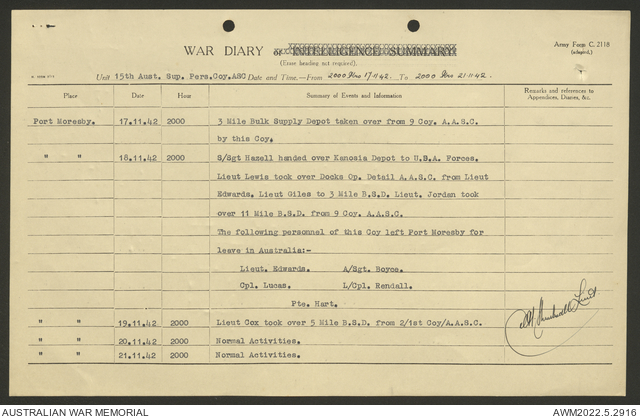 Army Form C. 2118
(adapted.)
WAR DIARY or INTELLIGENCE SUMMARY
(Erase heading not required).
Unit 15th Aust. Sup. Pers.Coy.ASC Date and Time.—From 2000 Hrs 17.11.42. To 2000 Hrs 21.11.42.
Place Date Hour Summary of Events and Information Remarks and references to
Appendices, Diaries, &c.
Port Moresby. 17.11.42 2000 3 Mile Bulk Supply Depot taken over from 9 Coy. A.A.S.C.
by this Coy.
" " 18.11.42 2000 S/Sgt Hazell handed over Kanosia Depot to U.S.A. Forces.
Lieut Lewis took over Docks Op. Detail A.A.S.C. from Lieut
Edwards. Lieut Giles to 3 Mile B.S.D. Lieut. Jordan took
over 11 Mile B.S.D. from 9 Coy. A.A.S.C.
The following personnel of this Coy left Port Moresby for
leave in Australia:-
Lieut. Edwards. A/Sgt. Boyce.
Cpl. Lucas. L/Cpl. Rendall.
Pte. Hart.
" " 19.11.42 2000 Lieut Cox took over 5 Mile B.S.D. from 2/1st Coy/A.A.S.C.
" " 20.11.42 2000 Normal Activities.
" " 21.11.42 2000 Normal Activities.
AUSTRALIAN WAR MEMORIAL AWM2022.5.2916